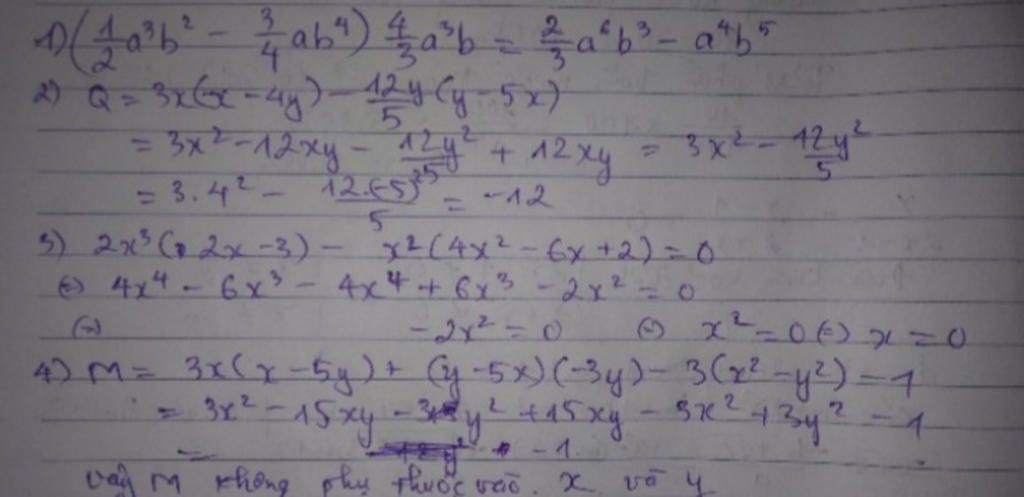 1) (1/2 a³b² - 3/4 ab⁴) 4/3 a³b = 2/3 a⁶b³ - a⁴b⁵
2) Q = 3x(x - 4y) - 12y/5 (y - 5x)
= 3x² - 12xy - 12y²/5 + 12xy = 3x² - 12y²/5
= 3.4² - 12.(-5)²/5 = -12
3) 2x³(2x - 3) - x²(4x² - 6x + 2) = 0
⇔ 4x⁴ - 6x³ - 4x⁴ + 6x³ - 2x² = 0
⇔ -2x² = 0 ⇔ x² = 0 ⇔ x = 0
4) M = 3x(x - 5y) + (y - 5x)(-3y) - 3(x² - y²) - 1
= 3x² - 15xy - 3y² + 15xy - 3x² + 3y² - 1
= -1
vậy M không phụ thuộc vào x và y